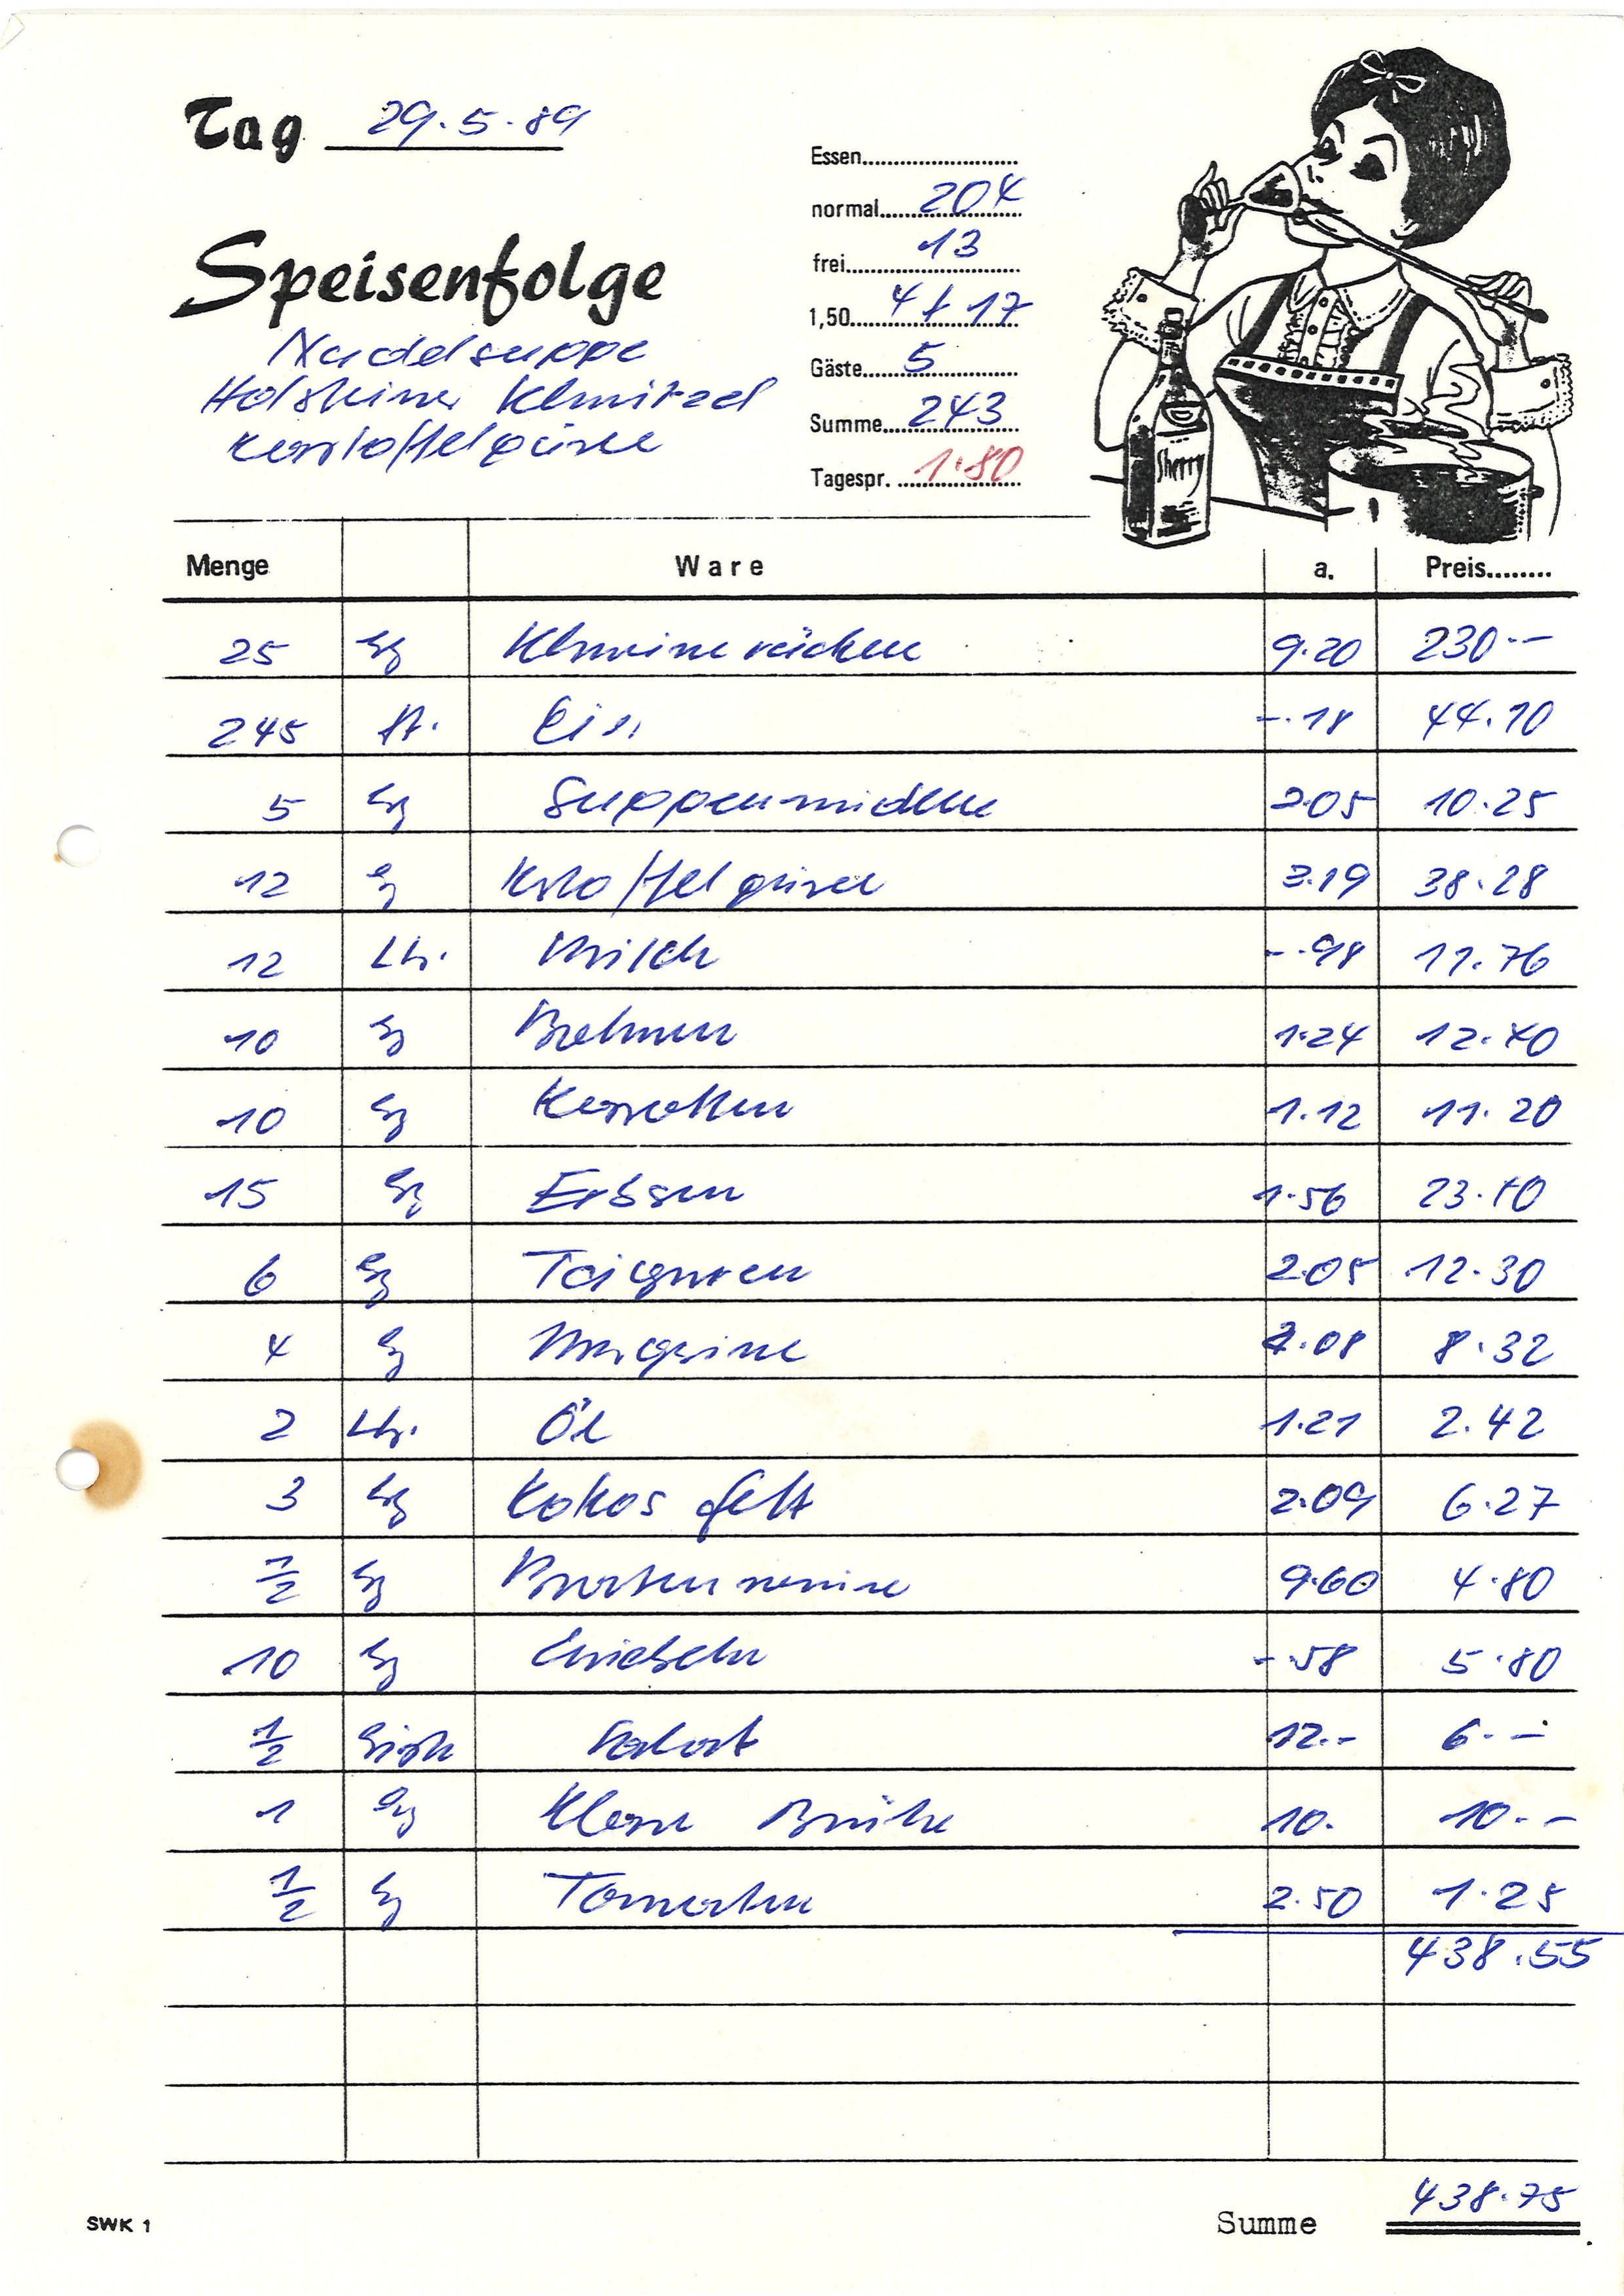 Tag 29.5.89
Speisenfolge
Nudelsuppe
Holsteiner Schnitzel
Kartoffelpüree
Essen
normal 204
frei 13
1,50 4 + 17
Gäste 5
Summe 243
Tagespr. 1.80
Sherry
Menge Ware a. Preis
25 kg Schweinerücken 9.20 230.--
245 St. Eier -.18 44.10
5 kg Suppennudeln 2.05 10.25
12 kg Kartoffelpüree 3.19 38.28
12 Ltr. Milch -.98 11.76
10 kg Bohnen 1.24 12.40
10 kg Karotten 1.12 11.20
15 kg Erbsen 1.56 23.40
6 kg Teigwaren 2.05 12.30
4 kg Margarine 2.08 8.32
2 Ltr. Öl 1.21 2.42
3 kg Kokosfett 2.09 6.27
1/2 kg 9.60 4.80
10 kg Zwiebeln -.58 5.80
1/2 Kiste Salat 12.- 6.--
1 kg Klare Brühe 10. 10.--
1/2 kg Tomaten 2.50 1.25
438.55
Summe 438.75
SWK 1